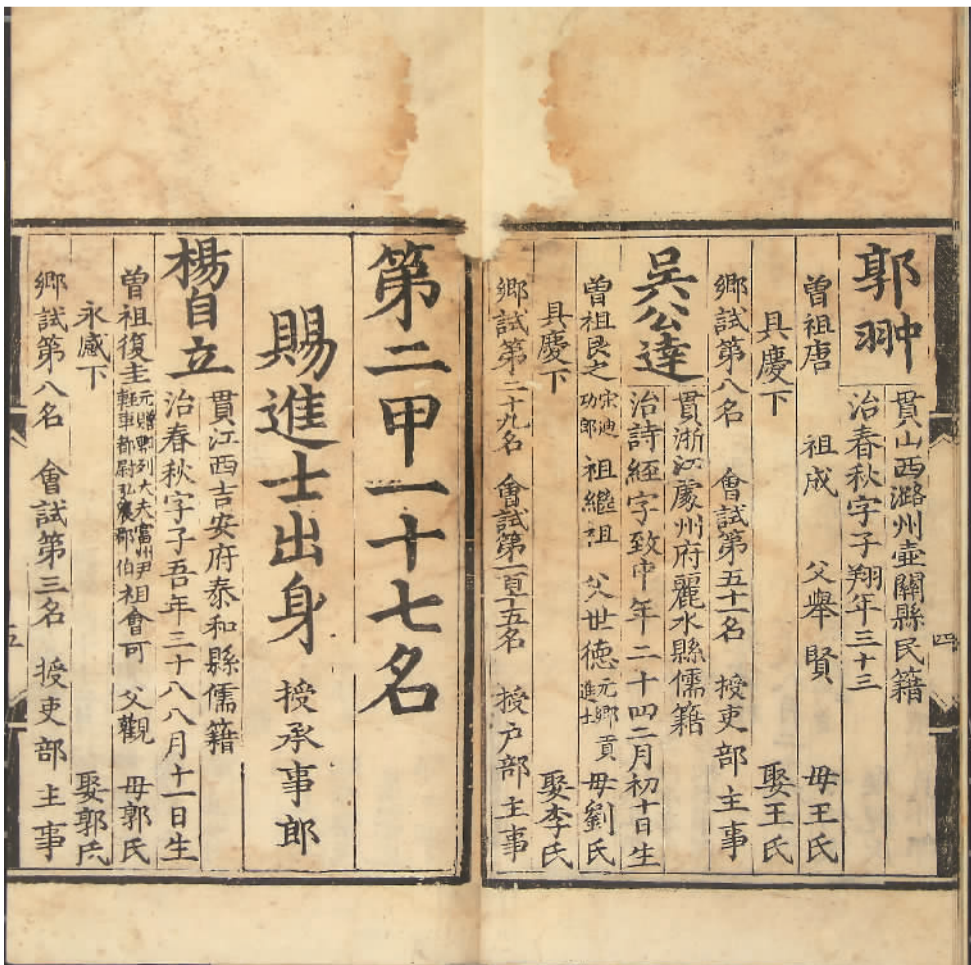 郭翀
貫山西潞州壺關縣民籍
治春秋字子翔年三十三
曾祖唐 祖成 父舉賢 母王氏
具慶下 娶王氏
鄉試第八名 會試第五十一名 授吏部主事
吳公達
貫浙江處州府麗水縣儒籍
治詩經字致中年二十四二月初十日生
曾祖良之宋迪功郎 祖繼祖 父世德元鄉貢進士 母劉氏
具慶下 娶李氏
鄉試第二十九名 會試第一百十五名 授戶部主事
第二甲一十七名
賜進士出身 授承事郎
楊自立
貫江西吉安府泰和縣儒籍
治春秋字子吾年三十八八月十一日生
曾祖復圭元贈朝列大夫富州尹輕車都尉弘農郡伯 祖會可 父觀 母郭氏
永感下 娶郭氏
鄉試第八名 會試第三名 授吏部主事
四
五